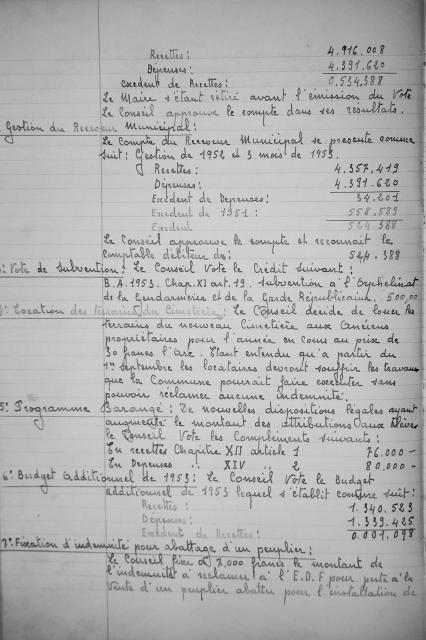 Recettes: 4.916.008
Dépenses: 4.391.620
Excédent de Recettes: 0,534,388
Le Maire s'étant retiré avant l'émission du Vote
Le Conseil approuve le compte dans ses résultats.
Gestion du Receveur Municipal:
Le Compte du Receveur Municipal se présente comme
suit: Gestion de 1952 et 3 mois de 1953.
Recettes: 4.357,419
Dépenses: 4.391.620
Excédent de Dépenses: 34.201
Excédent de 1951: 558,589
Excédent 524,388
Le Conseil approuve le compte et reconnait le
comptable débiteur de: 524.388
3° Vote de Subvention: Le Conseil Vote le Crédit suivant:
B.A. 1953. Chap. XI art. 19. Subvention à l'Orphelinat
de la Gendarmerie et de la Garde Républicaine. 500,00
4° Location des terrains du Cimetière: Le Conseil décide de louer les
terrains du nouveau Cimetière aux Anciens
propriétaires pour l'année en cours au prix de
30 francs l'Are. Etant entendu qu'à partir du
1er septembre les locataires devront souffrir les travaux
que la Commune pourrait faire exécuter sans
pouvoir réclamer aucune indemnité.
5° Programme Barangé: De nouvelles dispositions légales ayant
augmenté le montant des attributions aux Elèves
le Conseil Vote les Compléments suivants:
En recettes Chapitre XII article 1 76.000 -
En Dépenses " XIV " 2 80,000 -
6° Budget Additionnel de 1953: Le Conseil Vote le Budget
additionnel de 1953 lequel s'établit comme suit:
Recettes: 1.340.523
Dépenses: 1.339.425
Excédent de Recettes: 0.001,098
7° Fixation d'indemnité pour abattage d'un peuplier:
Le Conseil fixe à 7,000 francs le montant de
l'indemnité à réclamer à l'E.D.F pour perte à la
Vente d'un peuplier abattu pour l'installation de